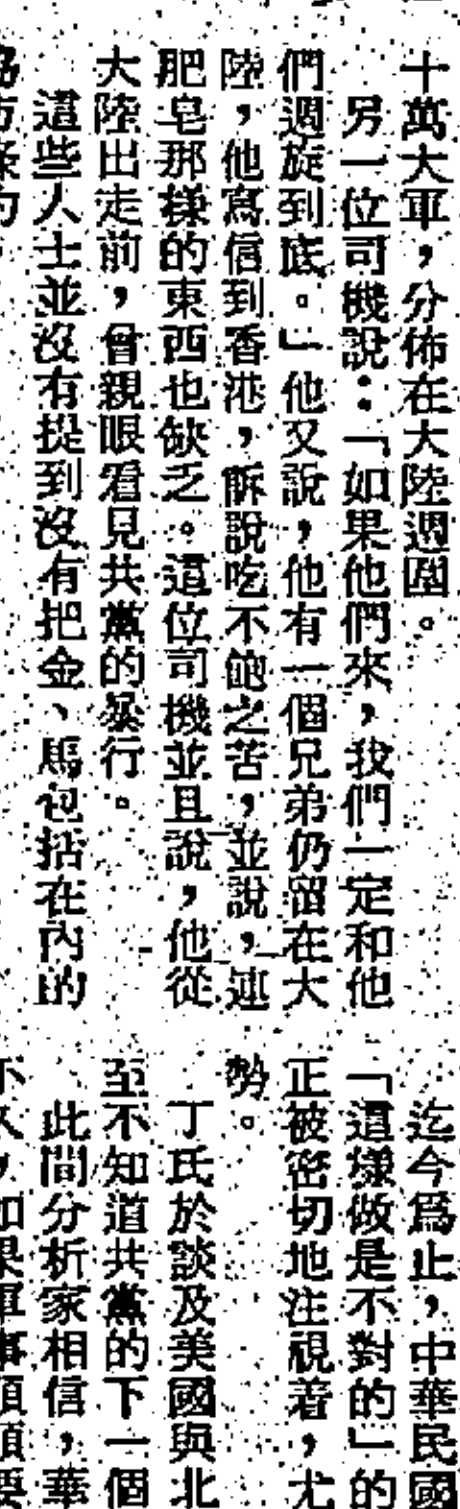 十萬大軍，分佈在大陸週圍。
另一位司機說：「如果他們來，我們一定和他
們週旋到底。」他又說，他有一個兄弟仍留在大
陸，他寫信到香港，訴說吃不飽之苦，並說，連
肥皂那樣的東西也缺乏。這位司機並且說，他從
大陸出走前，曾親眼看見共黨的暴行。
這些人士並沒有提到沒有把金、馬包括在內的
迄今爲止，中華民國
「這樣做是不對的」的
正被密切地注視着，尤
勢。
丁氏於談及美國與北
至不知道共黨的下一個
此間分析家相信，華